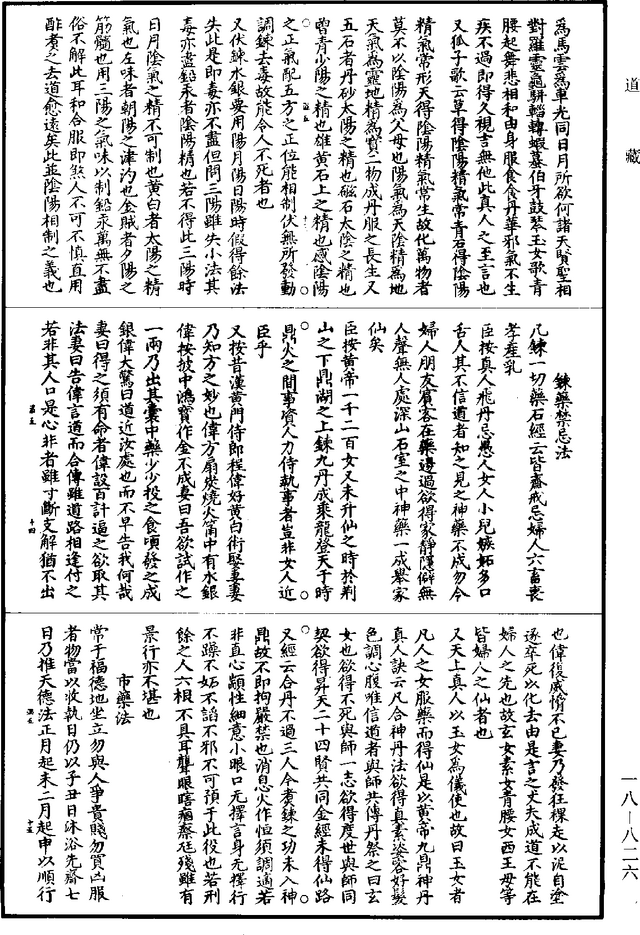 道藏
為馬雲為車光同日月所欲何諸天賢聖相
對羅靈龜駢輜轉蝦蟇伯牙鼓琴玉女歌青
腰起舞悲相和由身服食食丹華邪氣不生
疾不過即得久視吉無他此真人之至言也
又狐子歌云草得陰陽精氣常青石得陰陽
精氣常形天得陰陽精氣常生故化萬物者
莫不以陰陽為父母也陽氣為天陰精為地
天氣為靈地精為寶二物成丹服之長生又
五石者丹砂太陽之精也磁石太陰之精也
曾青少陽之精也雄黃石上之精也感陰陽
之正氣配五方之正位能相制伏無所發動
調鍊去毒故能令人不死者也
又伏鍊水銀要用陽月陽日陽時假得餘法
失此是即毒亦不盡但問三陽雖失小法其
毒亦盡鉛汞者陰陽精也若不得此三陽時
日月陰氣之精不可制也黃白者太陽之精
氣也左味者朝陽之津汋也金賊者夕陽之
筋髓也用三陽之氣味以制鉛汞萬無不盡
俗不解此耳和合服即煞人不可不慎直用
酢煮之去道愈遠矣此並陰陽相制之義也
鍊藥禁忌法
凡鍊一切藥石經云皆齋戒忌婦人六畜喪
孝產乳
臣按真人飛丹忌愚人女人小兒嫉妬多口
舌人其不信道者知之見之神藥不成勿令
婦人朋友賓客在藥邊過欲得家靜隱僻無
人聲無人處深山石室之中神藥一成舉家
仙矣
臣按黃帝一千二百女又未升仙之時於荊
山之下鼎湖之上鍊九丹成乘龍登天于時
鼎火之間事資人力侍執事者豈非女人近
臣乎
又按昔漢黃門侍郎程偉好黃白術娶妻妻
乃知方之妙也偉方扇炭燒火筩中有水銀
偉按披中鴻寶作金不成妻曰吾欲試作之
一兩乃出其囊中藥少少投之食頃發之成
銀偉大驚曰道近汝處也而不早告我何哉
妻曰得之須有命者偉設百計逼之欲取其
法妻曰告偉言道而合傳雖道路相逢付之
若非其人口是心非者雖寸斷支解猶不出
也偉復威愶不已妻乃發狂裸走以泥自塗
遂卒死以化去由是言之丈夫成道不能在
婦人之先也故玄女素女青腰女西王母等
皆婦人之仙者也
又天上真人以玉女為儀使也故曰玉女者
凡人之女服藥而得仙是以黃帝九鼎神丹
真人訣云凡合神丹法欲得真素姿容好髮
色調心腹唯信道者與師共傳丹祭之曰玄
女也欲得不死與師一志欲得度世與師同
契欲得昇天二十四賢共同金經未得仙路
又經云合丹不過三人今煮鍊之功未入神
鼎故不即拘嚴禁也消息火作恒須調適若
非直心顓性細意小眼口无擇言身无擇行
不躁不妬不諂不邪不可預于此役也若刑
餘之人六根不具耳聾眼瞎瘑瘵尫殘雖有
景行亦不堪也
市藥法
常于福德地坐立勿與人爭貴賤勿買凶服
者物當以收執日仍以子丑日沐浴先齋七
日乃推天德法正月起未二月起申以順行
一八—八二六